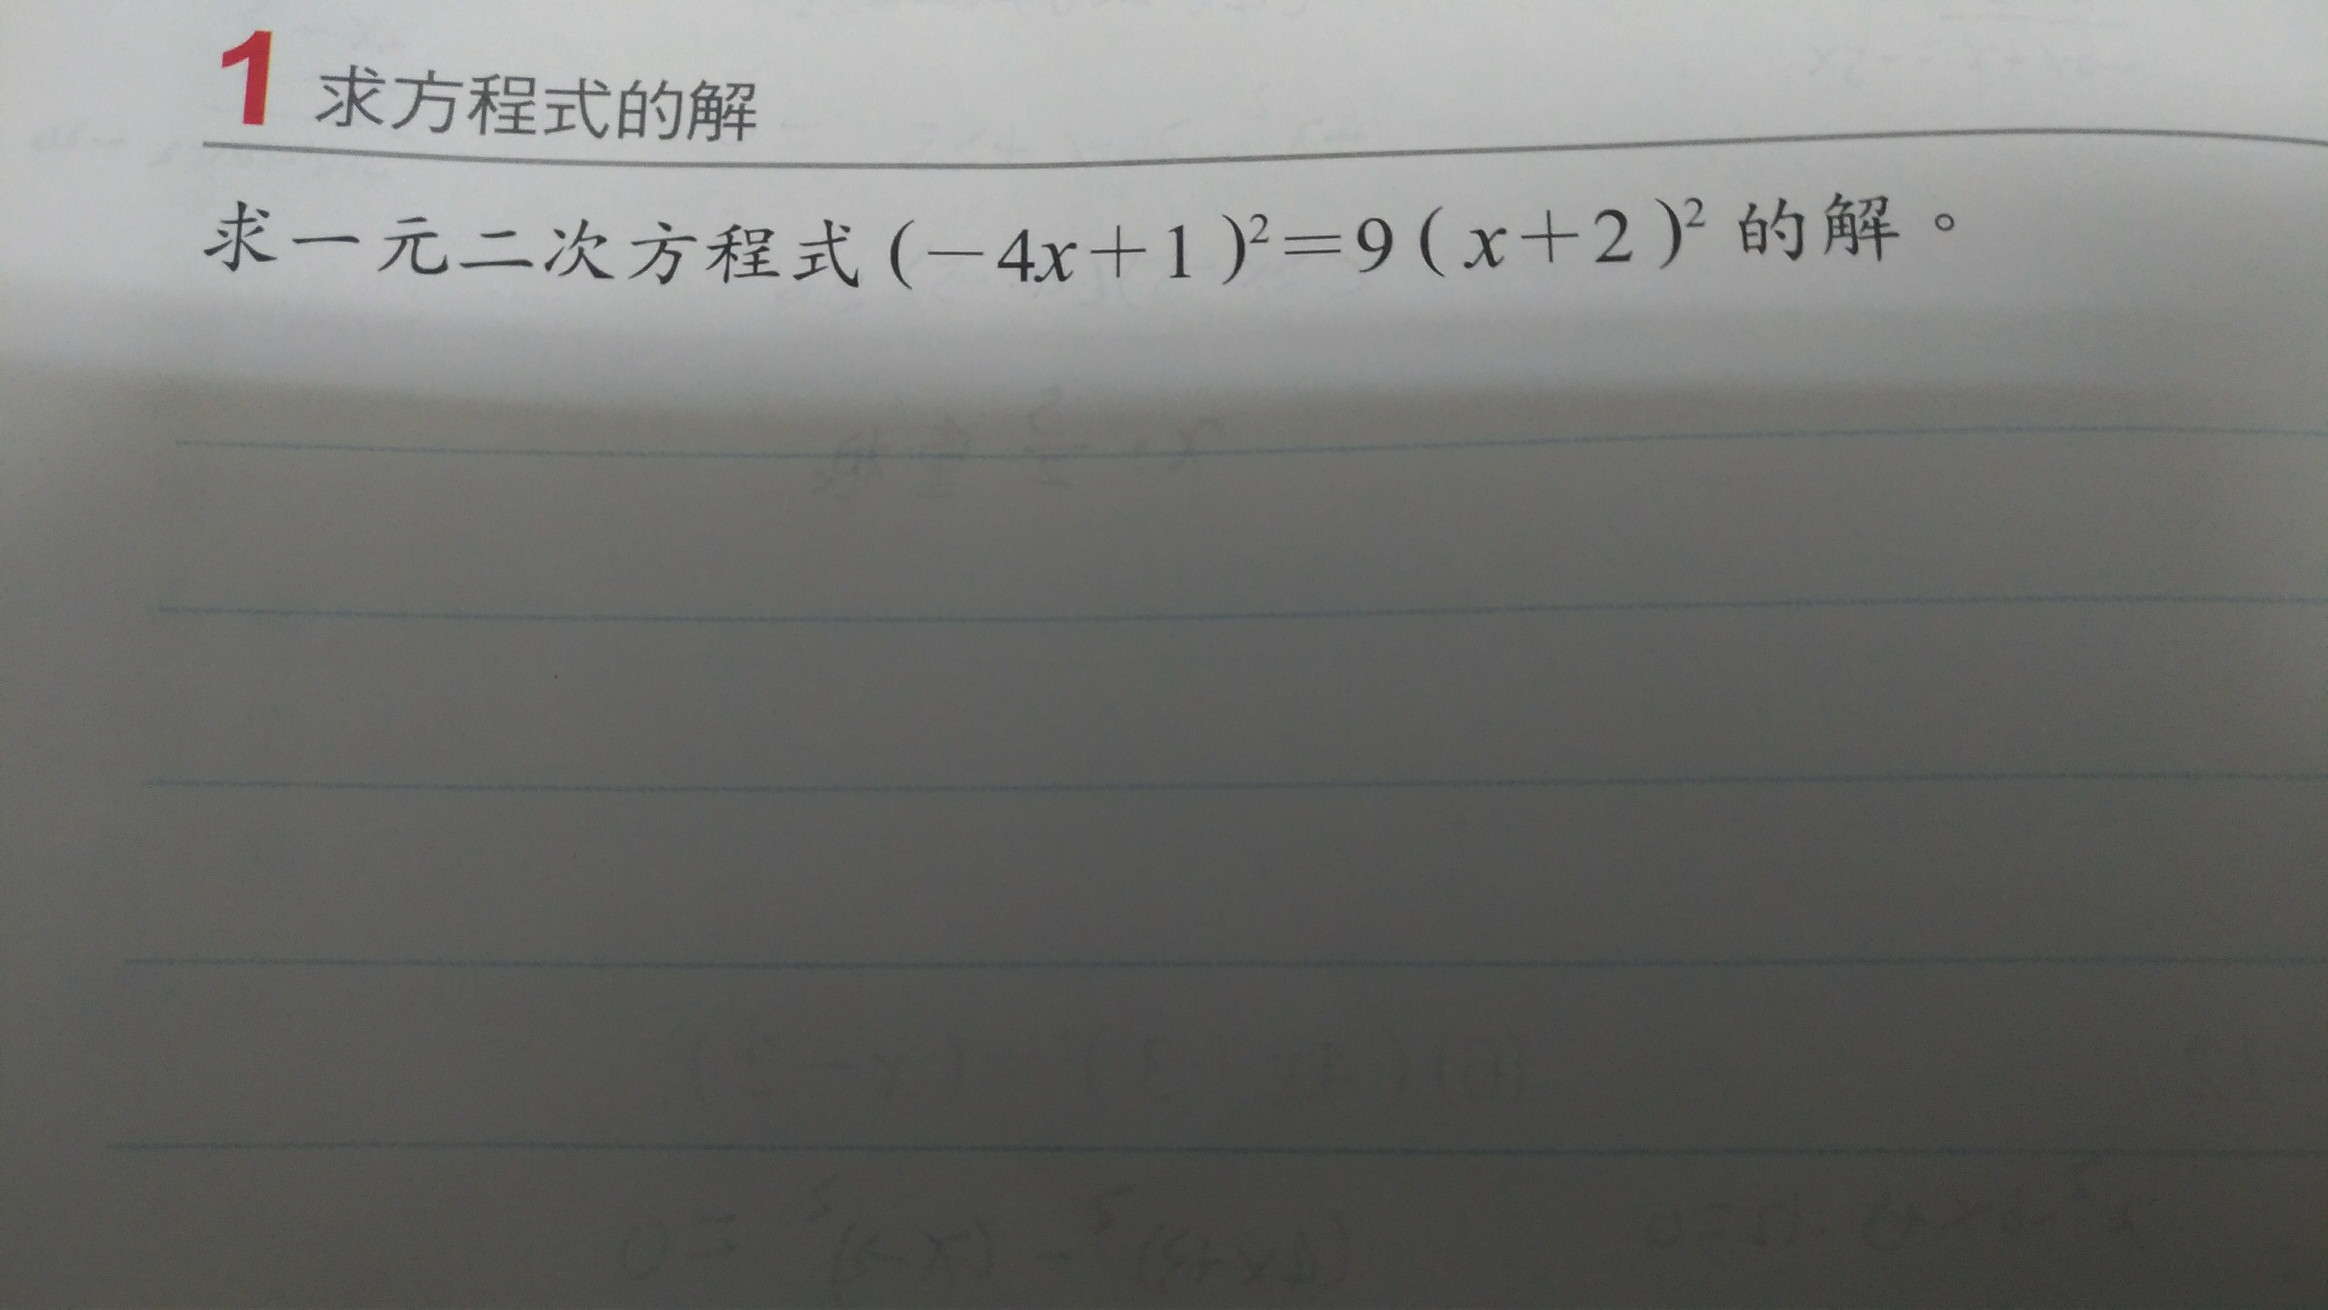 1 求方程式的解
求一元二次方程式(-4x+1)²=9(x+2)²的解。